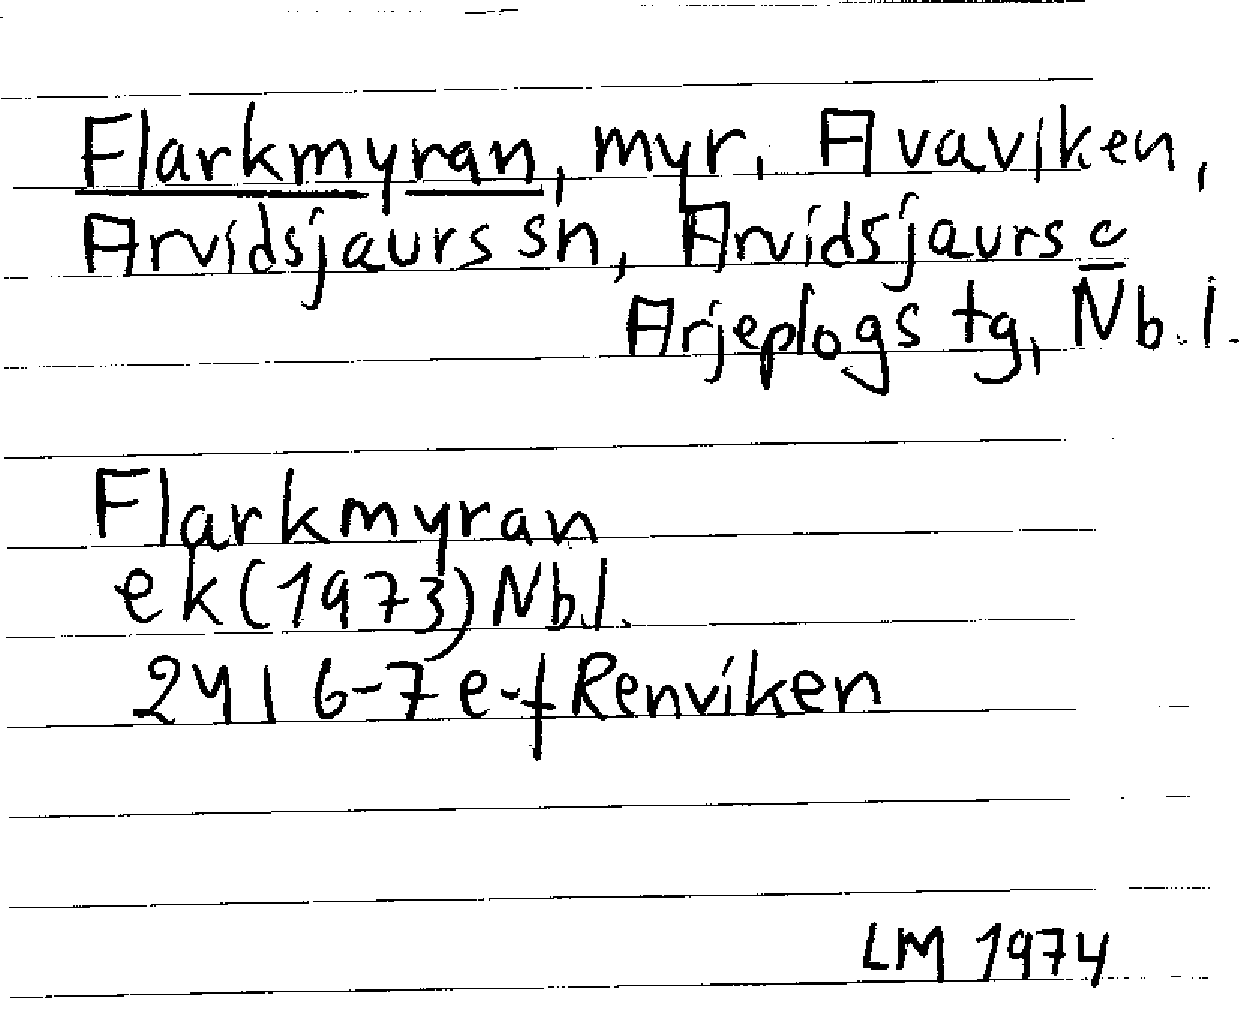 Flarkmyran, myr, Avaviken,
Arvidsjaurs sn, Arvidsjaurs o
Arjeplogs tg, Nb.l.
Flarkmyran
ek (1973) Nb.l.
24 I 6-7 e-f Renviken
LM 1974